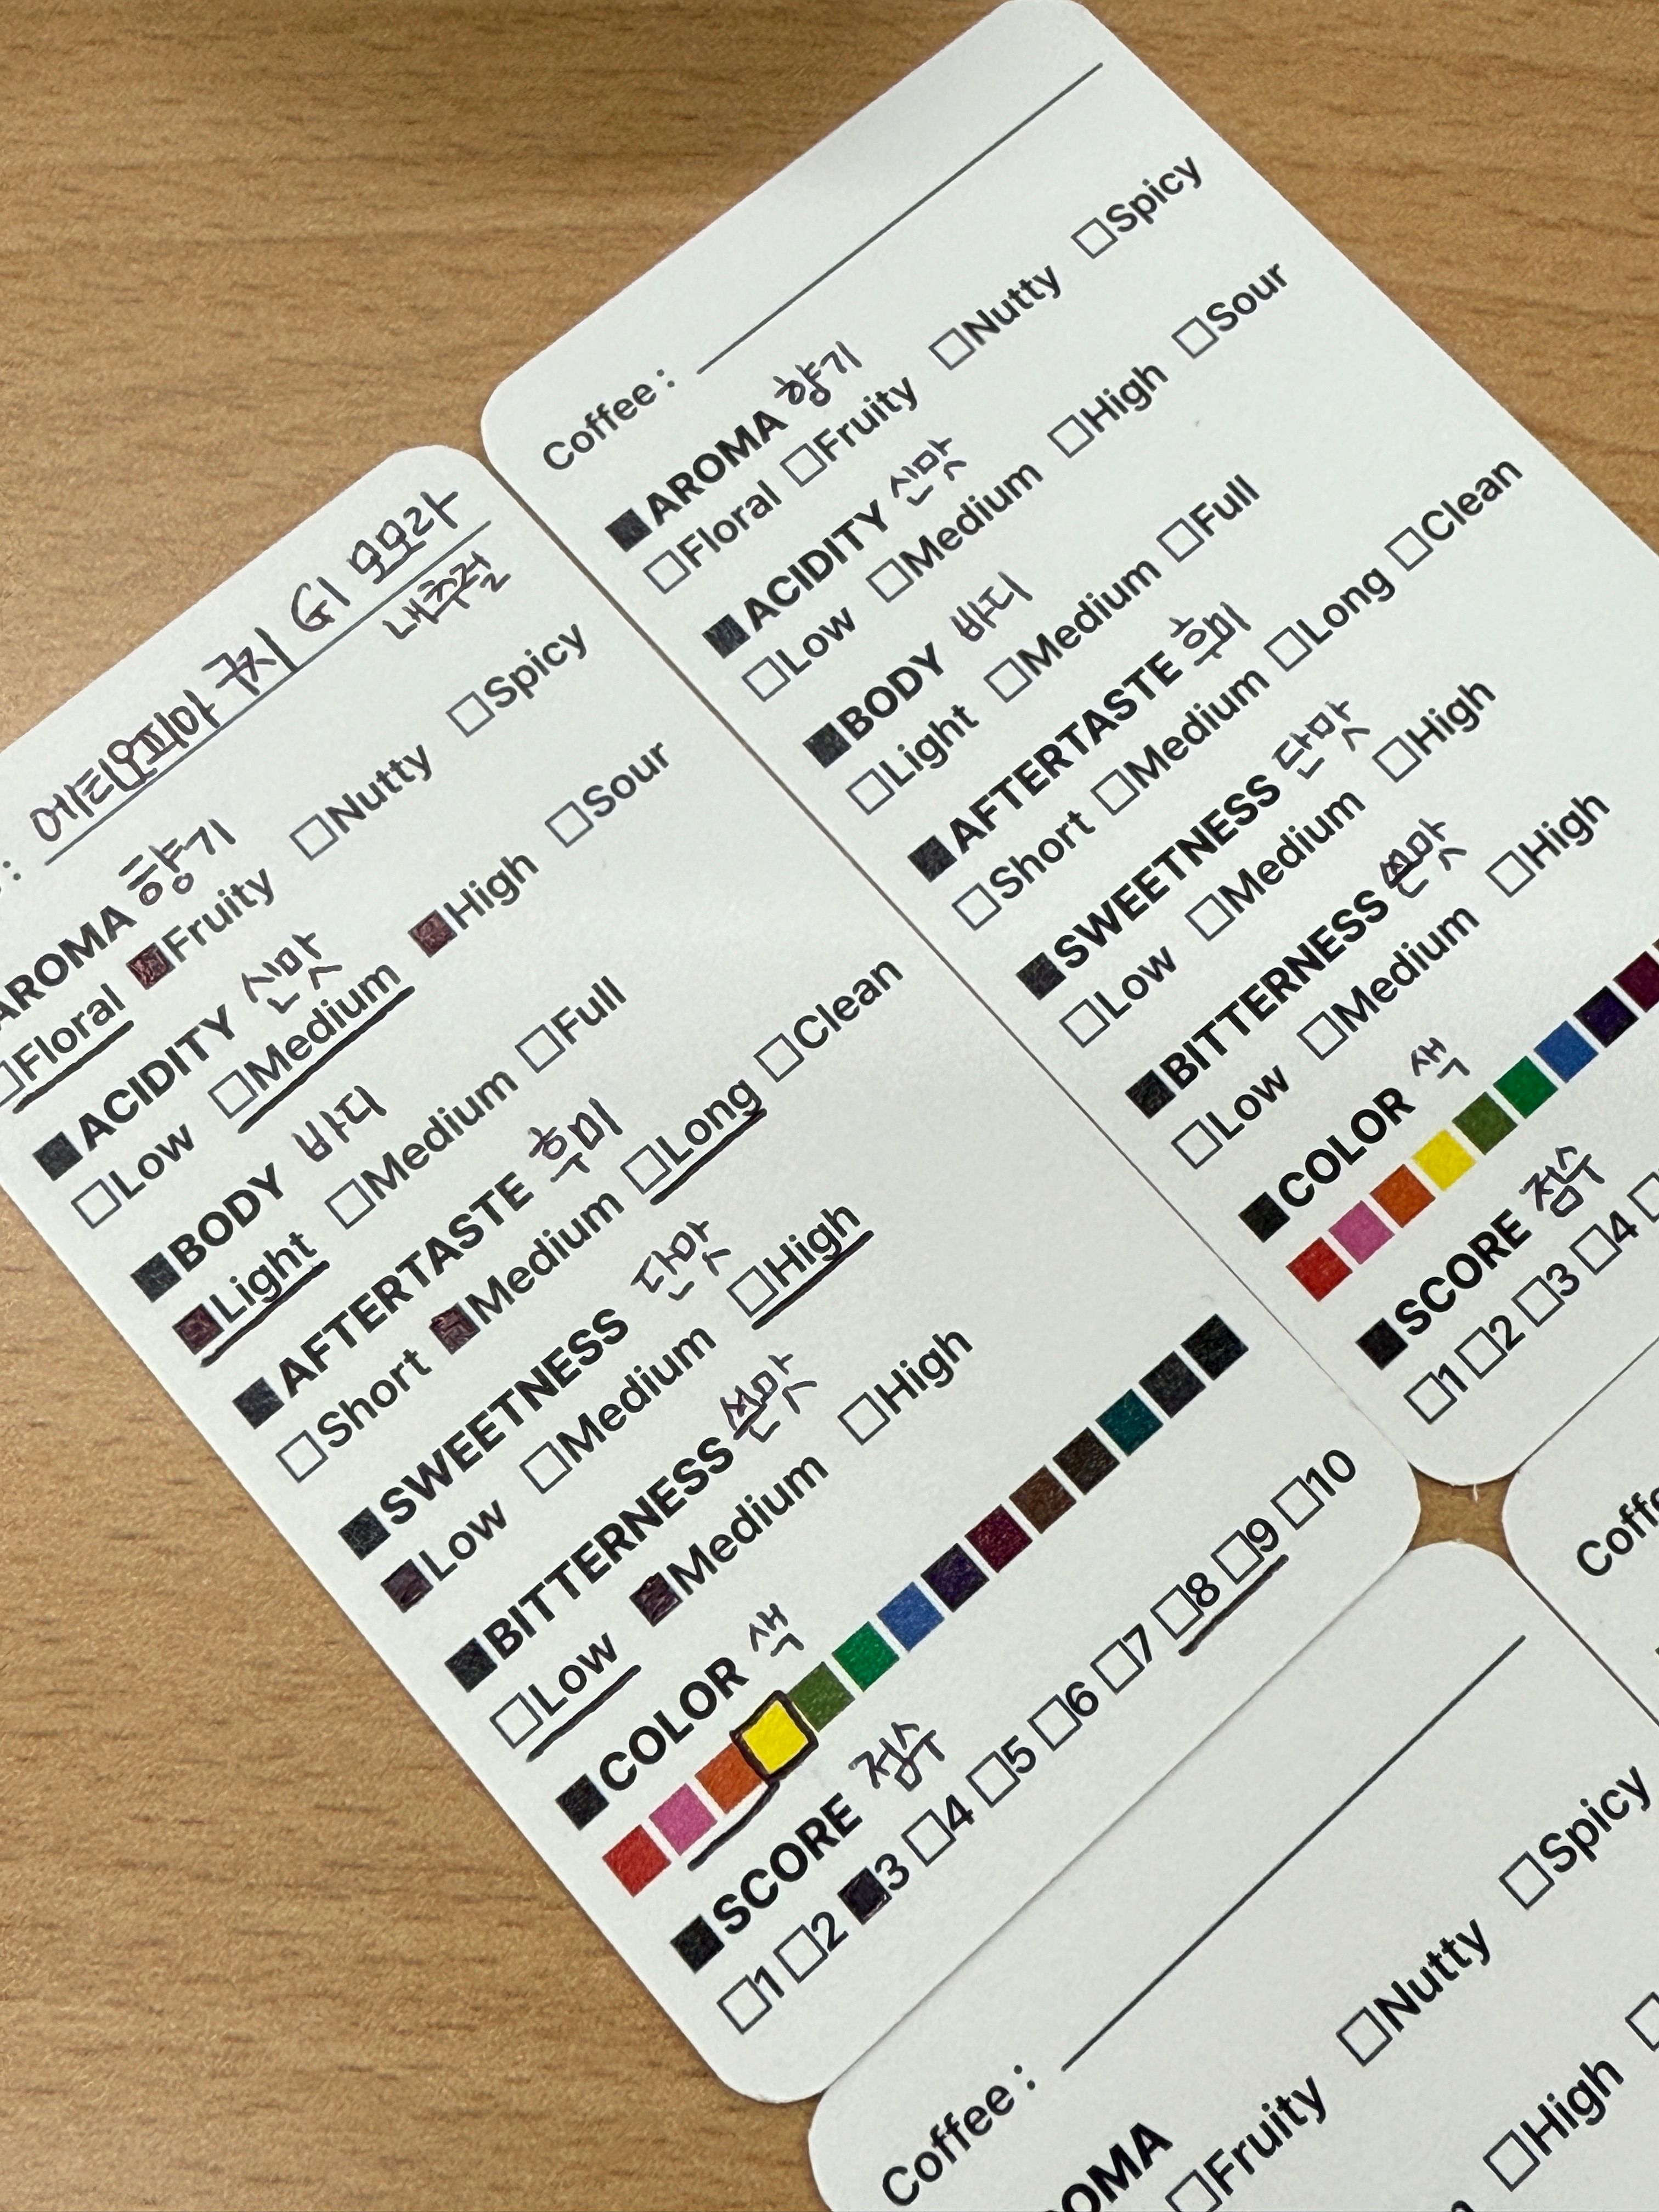 : 에티오피아 구지 G1 모모라
내추럴
AROMA 향기
□Floral ■Fruity □Nutty □Spicy
■ACIDITY 신맛
□Low □Medium ■High □Sour
■BODY 바디
■Light □Medium □Full
■AFTERTASTE 후미
□Short ■Medium □Long □Clean
■SWEETNESS 단맛
■Low □Medium □High
■BITTERNESS 쓴맛
□Low ■Medium □High
■COLOR 색
■SCORE 점수
□1 □2 ■3 □4 □5 □6 □7 □8 □9 □10
Coffee :
■AROMA 향기
□Floral □Fruity □Nutty □Spicy
■ACIDITY 신맛
□Low □Medium □High □Sour
■BODY 바디
□Light □Medium □Full
■AFTERTASTE 후미
□Short □Medium □Long □Clean
■SWEETNESS 단맛
□Low □Medium □High
■BITTERNESS 쓴맛
□Low □Medium □High
■COLOR 색
■SCORE 점수
□1 □2 □3 □4
Coffee :
OMA
□Fruity □Nutty □Spicy
□High
Coffe